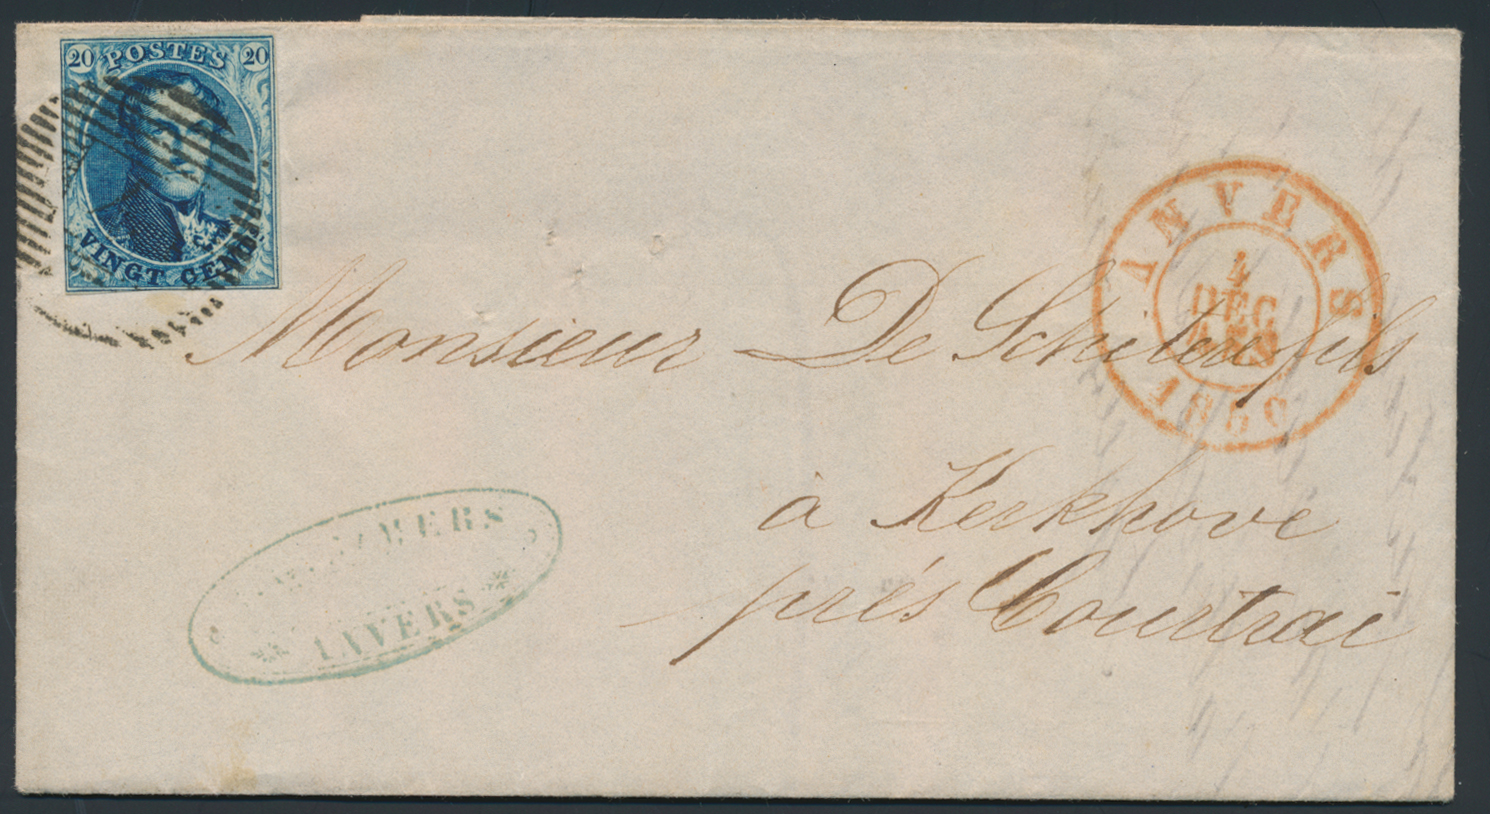 20 POSTES 20
VINGT CENT.
ANVERS
4
DEC
1850
Monsieur De
fils
à Kerkhove
près Courtrai
ANVERS